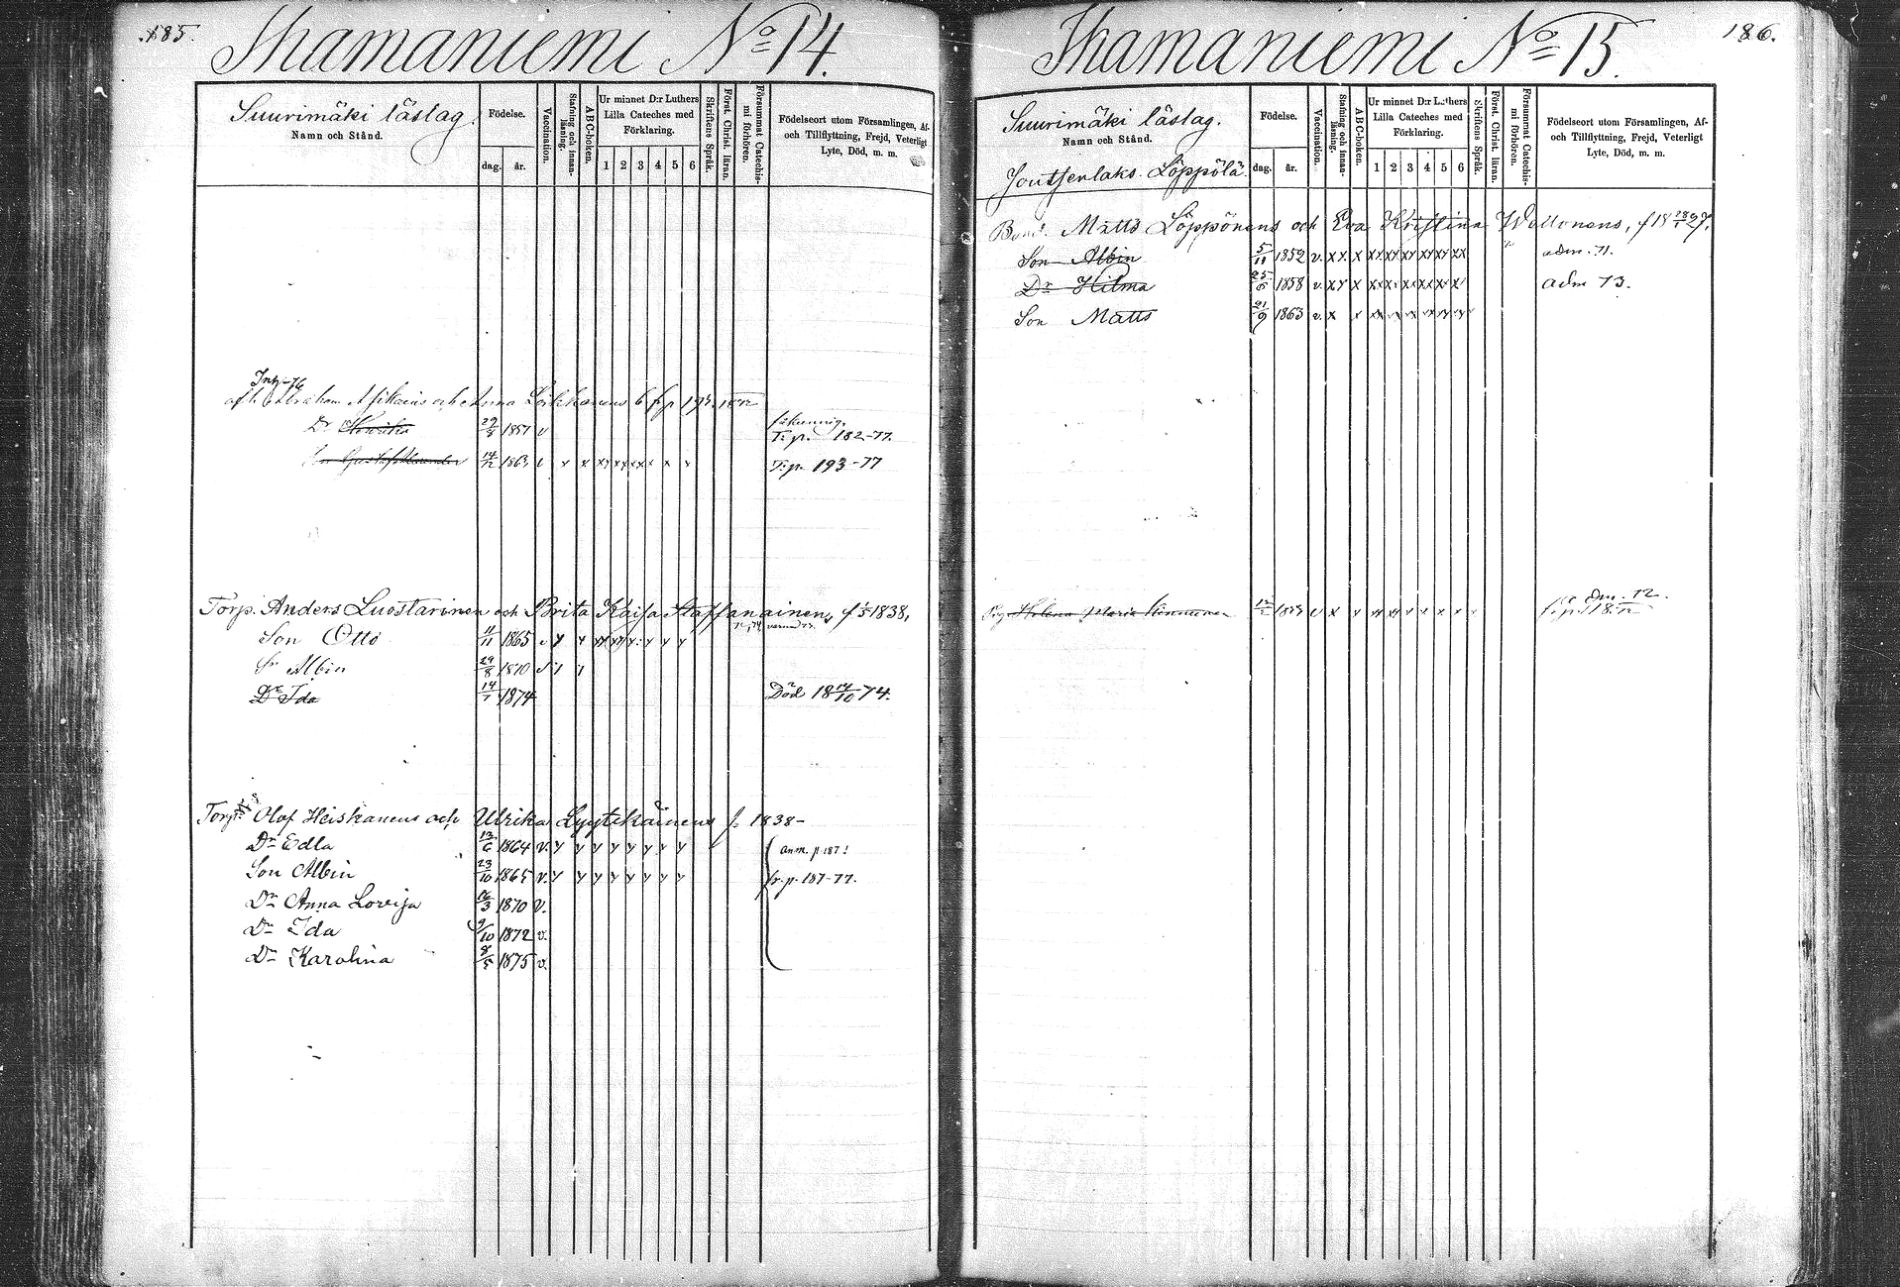 185.
Ihamaniemi No 14.
Suurimäki läslag.
Namn och Stånd.
Födelse.
dag. år.
Vaccination.
Stafning och innan-läsning.
ABC-boken.
Ur minnet D:r Luthers Lilla Cateches med Förklaring.
1 2 3 4 5 6
Skriftens Språk.
Först. Christ. läran.
Försummat Catechis-mi förhören.
Födelseort utom Församlingen, Af- och Tillflyttning, Frejd, Veterligt Lyte, Död, m. m.
Inh. 76
Anna
Dr 29/8 1857 v
T. p. 182-77.
14/12 1863 v x x xx xx xx x x x
T. p. 193-77
Torp. Anders Luostarinen och Brita Kaisa Staffanainens f 1/5 1838,
Son Otto 11/11 1865 v y y xx xx y y y y
Sn Albin 29/8 1870 v
Dr Ida 14/7 1874 Död 18 14/10 74.
Torp. Olof Heiskanens och Ulrika Lyytikäinens f. 1838-
Dr Edla 13/6 1864 v. y y y y y y y y anm. p 187!
Son Albin 23/10 1865 v. y y y y y y y y fr. p. 187-77.
Dr Anna Lovisa 16/3 1870 v.
Dr Ida 9/10 1872 v.
Dr Karolina 8/5 1875 v.
186.
Ihamaniemi No 15.
Suurimäki läslag.
Namn och Stånd.
Joutsenlaks. Löppölä
Födelse.
dag. år.
Vaccination.
Stafning och innan-läsning.
ABC-boken.
Ur minnet D:r Luthers Lilla Cateches med Förklaring.
1 2 3 4 5 6
Skriftens Språk.
Först. Christ. läran.
Försummat Catechis-mi förhören.
Födelseort utom Församlingen, Af- och Tillflyttning, Frejd, Veterligt Lyte, Död, m. m.
Bond. Matts Löppönens och Eva Kristina Wallonens, f 18 28/1 27.
Son Albin 5/11 1852 v. x x x xx xx xx xx xx xx adm. 71.
Dr Hilma 25/6 1858 v. x y x xx xx xx xx xx x adm 73.
Son Matts 21/9 1863 v. x x xx xx xx xx xx xx
Pig. Helena Maria Kinnunen adm. 72.